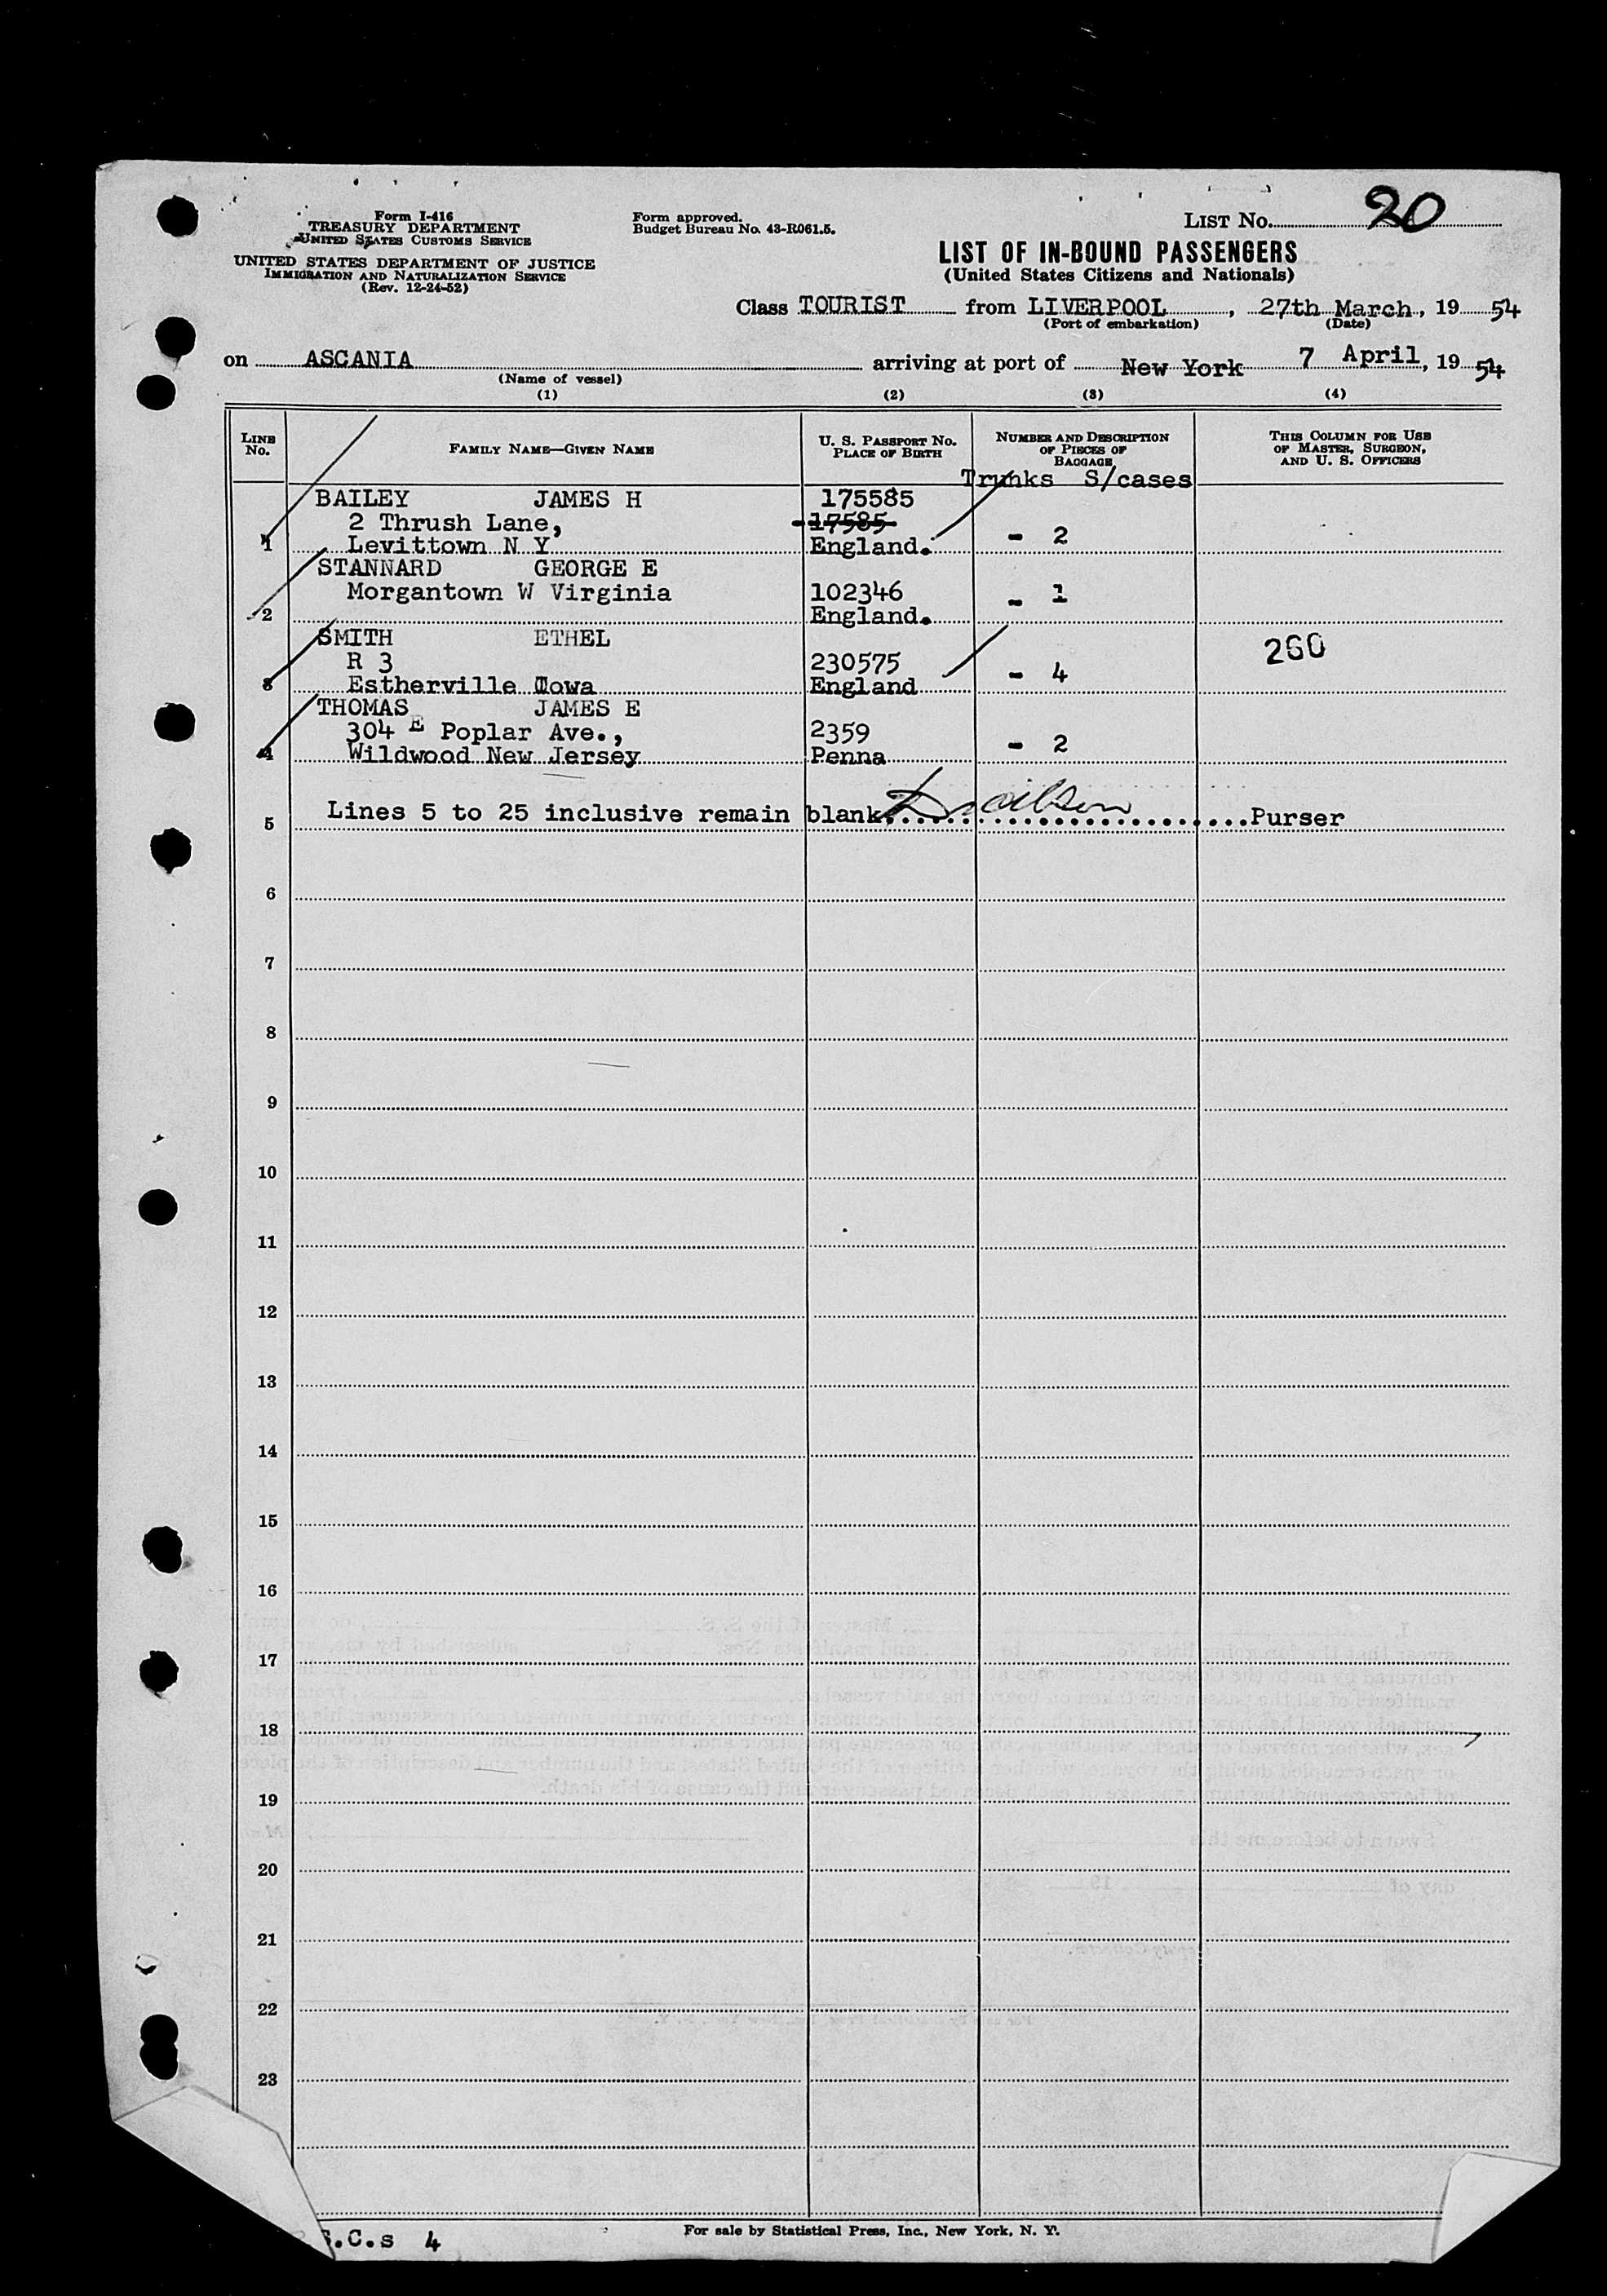 Form I-416
TREASURY DEPARTMENT
UNITED STATES CUSTOMS SERVICE
UNITED STATES DEPARTMENT OF JUSTICE
IMMIGRATION AND NATURALIZATION SERVICE
(Rev. 12-24-52)
Form approved.
Budget Bureau No. 43-R061.5.
LIST No. 20
LIST OF IN-BOUND PASSENGERS
(United States Citizens and Nationals)
Class TOURIST from LIVERPOOL, 27th March, 19 54
(Port of embarkation) (Date)
on ASCANIA arriving at port of New York 7 April, 19 54
(Name of vessel)
(1) (2) (3) (4)
LINE No. FAMILY NAME—GIVEN NAME U. S. PASSPORT No. PLACE OF BIRTH NUMBER AND DESCRIPTION OF PIECES OF BAGGAGE THIS COLUMN FOR USE OF MASTER, SURGEON, AND U. S. OFFICERS
Trunks S/cases
BAILEY JAMES H 175585
2 Thrush Lane, 17585
1 Levittown N Y England. - 2
STANNARD GEORGE E
Morgantown W Virginia 102346 - 1
2 England.
SMITH ETHEL 260
R 3 230575
3 Estherville Iowa England - 4
THOMAS JAMES E
304 E Poplar Ave., 2359
4 Wildwood New Jersey Penna - 2
5 Lines 5 to 25 inclusive remain blank. Purser
6
7
8
9
10
11
12
13
14
15
16
17
18
19
20
21
22
23
S.C.s 4
For sale by Statistical Press, Inc., New York, N. Y.